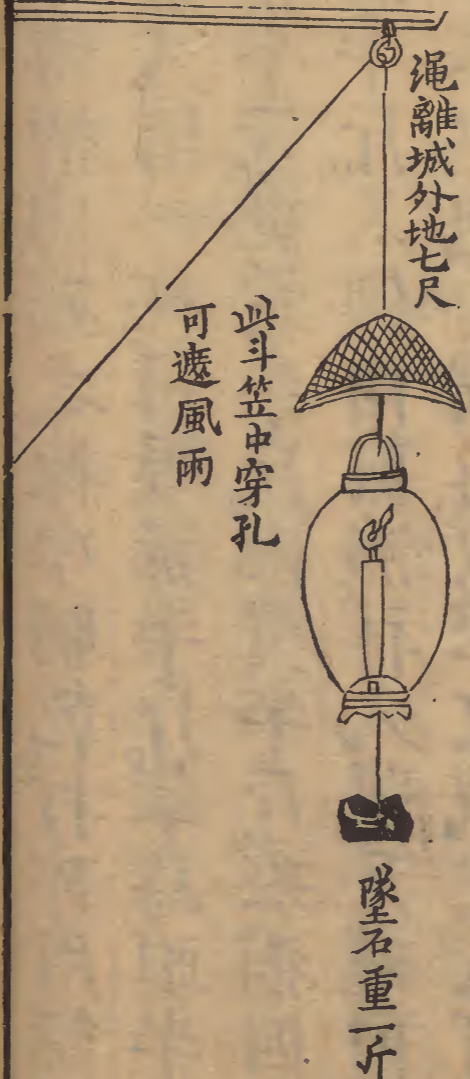 绳離城外地七尺
此斗笠中穿孔
可遮風雨
墜石重一斤